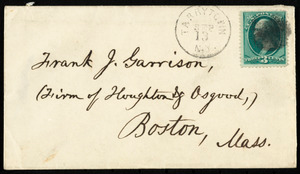 TARRYTOWN
13
N.Y.
Frank J. Garrison,
(Firm of Houghton & Osgood,)
Boston, Mass.